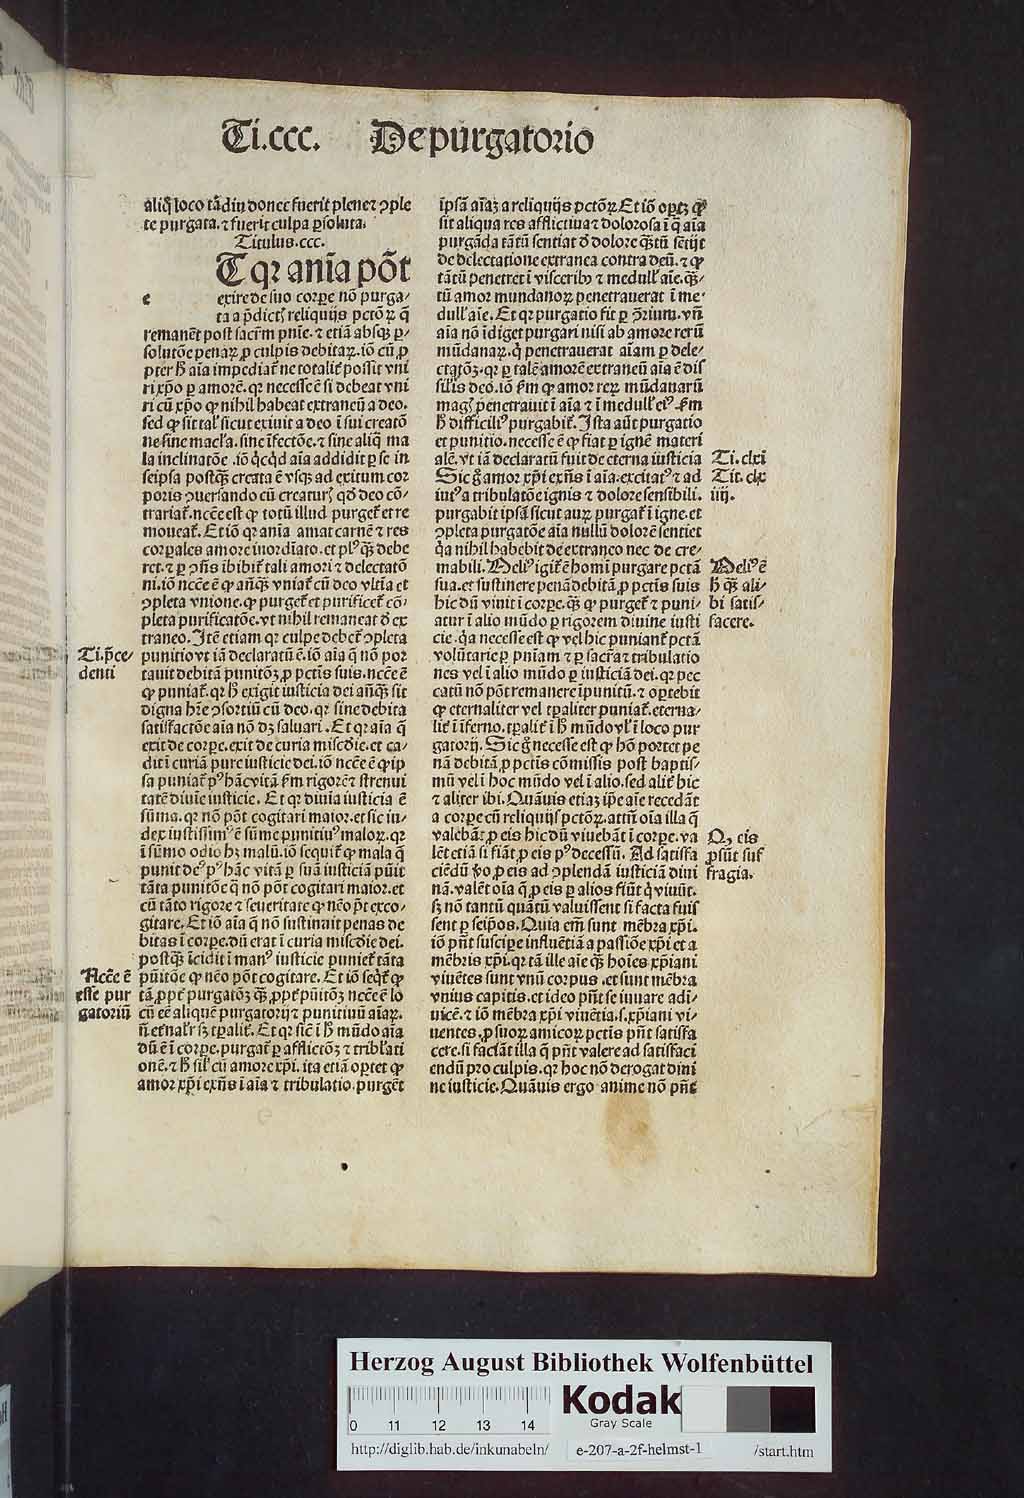 Ti.ccc. De purgatorio
aliq̄ loco tādiu donec fuerit plene ⁊ ꝯple
te purgata. ⁊ fuerit culpa ꝑsoluta.
Titulus.ccc.
T qꝛ anīa põt
e exire de suo corꝑe nō purga-
ta a p̄dictꝭ reliquijs pctōꝝ q̄
remanēt post sacrm̄ pnīe. ⁊ etiā absqꝫ ꝑ-
solutōe penaꝝ ꝓ culpis debitaꝝ. iō cū ꝓ
pter ħ aīa impediat᷑ ne totalit᷑ possit vni
ri xp̄o ꝑ amorē. qꝛ necesse ē si debeat vni
ri cū xp̄o ꝙ nihil habeat extraneū a deo.
sed ꝙ sit tal' sicut exiuit a deo ī sui creatō
ne. sine macl'a. sine īfectōe. ⁊ sine aliq̄ ma
la inclinatōe. iō q̇cq̇d aīa addidit ꝑ se in
seipsa postqꝫ creata ē vsqꝫ ad exitum cor
poris ꝯuersando cū creaturꝭ qđ deo cō-
trariat᷑. ncc̄e est ꝙ totū illud purget᷑ et re
moueat᷑. Et iō qꝛ anīa amat carnē ⁊ res
corꝑales amore inordīato. et plꝰ qꝫ debe
ret. ⁊ ꝑ ꝯn̄s ībibit᷑ tali amori ⁊ delectatō
ni. iō ncc̄e ē ꝙ añqꝫ vniat᷑ cū deo vltīa et
ꝯpleta vnione. ꝙ purget᷑ et purificet᷑ cō-
pleta purificatōe. vt nihil remaneat đ ex
traneo. Itē etiam qꝛ culpe debet᷑ ꝯpleta
punitio vt iā declaratū ē. iō aīa q̄ nō por
tauit debitā punitōꝫ ꝓ pctis suis. ncc̄e ē
ꝙ puniat᷑. qꝛ ħ exigit iusticia dei añqꝫ sit
digna hr̄e ꝯsortiū cū deo. qꝛ sine debita
satisfactōe aīa nō dꝫ saluari. Et qꝛ aīa q̄
exit de corꝑe. exit de curia misc̄die. et ca-
dit ī curiā pure iusticie dei. iō ncc̄e ē ꝙ ip
sa puniat᷑ pꝰ hāc vitā ẜm rigorē ⁊ strenui
tatē diuīe iusticie. Et qꝛ diuīa iusticia ē
sūma. qꝛ nō põt cogitari maior. et sic iu-
dex iustissimꝰ ē sūme punitiuꝰ maloꝝ. qꝛ
ī sūmo odio hꝫ malū. iō sequit᷑ ꝙ mala q̄
punit deꝰ pꝰ hāc vitā ꝑ suā iusticiā pūit
tāta punitōe q̄ nō põt cogitari maior. et
cū tāto rigore ⁊ seueritate ꝙ neo p̄t exco-
gitare. Et iō aīa q̄ nō sustinuit penas de
bitas ī corꝑe. dū erat ī curia misc̄die dei.
postqꝫ īcidit ī manꝰ iusticie puniet᷑ tāta
pūitōe ꝙ neo põt cogitare. Et iō seq̇t᷑ ꝙ
tā ꝓpt᷑ purgatōꝫ qꝫ ꝓpt᷑ pūitōꝫ ncc̄e ē lo
cū eē aliquē purgatorij ⁊ punitiuū aīaꝝ.
n̄ et᷑nal'r sꝫ tꝑalit᷑. Et qꝛ sic̄ ī ħ mūdo aīa
dū ē ī corꝑe. purgat᷑ ꝑ afflictōꝫ ⁊ tribl'ati
onē. ⁊ ħ sil' cū amore xp̄i. ita etiā oꝑtet ꝙ
amor xp̄i exn̄s ī aīa ⁊ tribulatio. purgēt
Ti.p̄ce-
denti
Ncc̄e ē
esse pur
gatoriū
ipsā aīaꝫ a reliquijs pctōꝝ. Et iō oꝑtꝫ ꝙ
sit aliqua res afflictiua ⁊ dolorosa ī q̄ aīa
purgāda tātū sentiat đ dolore qꝫtū sētijt
de delectatione extranea contra deū. ⁊ ꝙ
tātū penetret ī visceribꝰ ⁊ medull' aīe. qꝫ-
tū amor mundanoꝝ penetrauerat ī me-
dull' aīe. Et qꝛ purgatio fit ꝑ ꝯrium. vn̄
aīa nō īdiget purgari nisi ab amore rerū
mūdanaꝝ. q̇ penetrauerat aīam ꝑ dele-
ctatōꝫ. qꝛ ꝑ talē amorē extraneū aīa ē dis
silis deo. iō ẜm ꝙ amor reꝝ mūdanarū
magꝭ penetrauit ī aīa ⁊ ī medull' eiꝰ. ẜm
ħ difficiliꝰ purgabit᷑. Ista aūt purgatio
et punitio. necesse ē ꝙ fiat ꝑ ignē materi
alē. vt iā declaratū fuit de eterna iusticia
Sic g̊ amor xp̄i exn̄s ī aīa. excitatꝰ ⁊ ad
iutꝰ a tribulatōe ignis ⁊ dolore sensibili.
purgabit ipsā sicut auꝝ purgat᷑ ī igne. et
ꝯpleta purgatōe aīa nullū dolorē sentiet
q̇a nihil habebit de extraneo nec de cre-
mabili. Meliꝰ igit᷑ ē homī purgare pctā
sua. et sustinere penā debitā ꝓ pctis suis
hic dū viuit ī corꝑe. qꝫ ꝙ purget᷑ ⁊ puni-
atur ī alio mūdo ꝑ rigorem diuine iusti
cie. q̇a necesse est ꝙ vel hic puniant᷑ pctā
volūtarie ꝑ pnīam ⁊ ꝑ sacr̄a ⁊ tribulatio
nes vel ī alio mūdo ꝑ iusticiā dei. qꝛ pec
catū nō põt remanere īpunitū. ⁊ oꝑtebit
ꝙ eternaliter vel tꝑaliter puniat᷑. eterna-
lit᷑ ī īferno. tꝑalit᷑ ī ħ mūdo vl' ī loco pur
gatorij. Sic g̊ necesse est ꝙ hō portet pe
nā debitā ꝓ pctis cōmissis post baptis-
mū vel ī hoc mūdo vel ī alio. sed alit᷑ hic
⁊ aliter ibi. Quāuis etiaꝫ ip̄e aīe recedāt
a corꝑe cū reliquijs pctōꝝ. attn̄ oīa illa q̄
valebāt ꝓ eis hic dū viuebāt ī corꝑe. va
lēt etiā si fiāt ꝓ eis pꝰ decessū. Ad satisfa
ciēdū ꝟo ꝓ eis ad ꝯplendā iusticiā diui
nā. valēt oīa q̄ ꝓ eis ꝑ alios fiūt q̇ viuūt.
sꝫ nō tantū quātū valuissent si facta fuis
sent ꝑ seip̄os. Quia em̄ sunt mēbra xp̄i.
iō pn̄t susciꝑe influētiā a passiōe xp̄i et a
mēbris xp̄i. qꝛ tā ille aīe qꝫ hoīes xp̄iani
viuētes sunt vnū corpus. et sunt mēbra
vnius capitis. et ideo pn̄t se iuuare adī-
uicē. ⁊ iō mēbra xp̄i viuētia. s. xp̄iani vi-
uentes. ꝓ suoꝝ amicoꝝ pctis pn̄t satisfa
cere. si faciāt illa q̄ pn̄t valere ad satisfaci
endū pro culpis. qꝛ hoc nō derogat diui
ne iusticie. Quāuis ergo anime nō pn̄t
Ti. clxi
Tit. clx
iiij.
Meliꝰ ē
ħ qꝫ ali-
bi satis-
facere.
Qꝫ eis
ꝓsūt suf
fragia.
Herzog August Bibliothek Wolfenbüttel
0 11 12 13 14
Kodak
Gray Scale
http://diglib.hab.de/inkunabeln/ e-207-a-2f-helmst-1 /start.htm